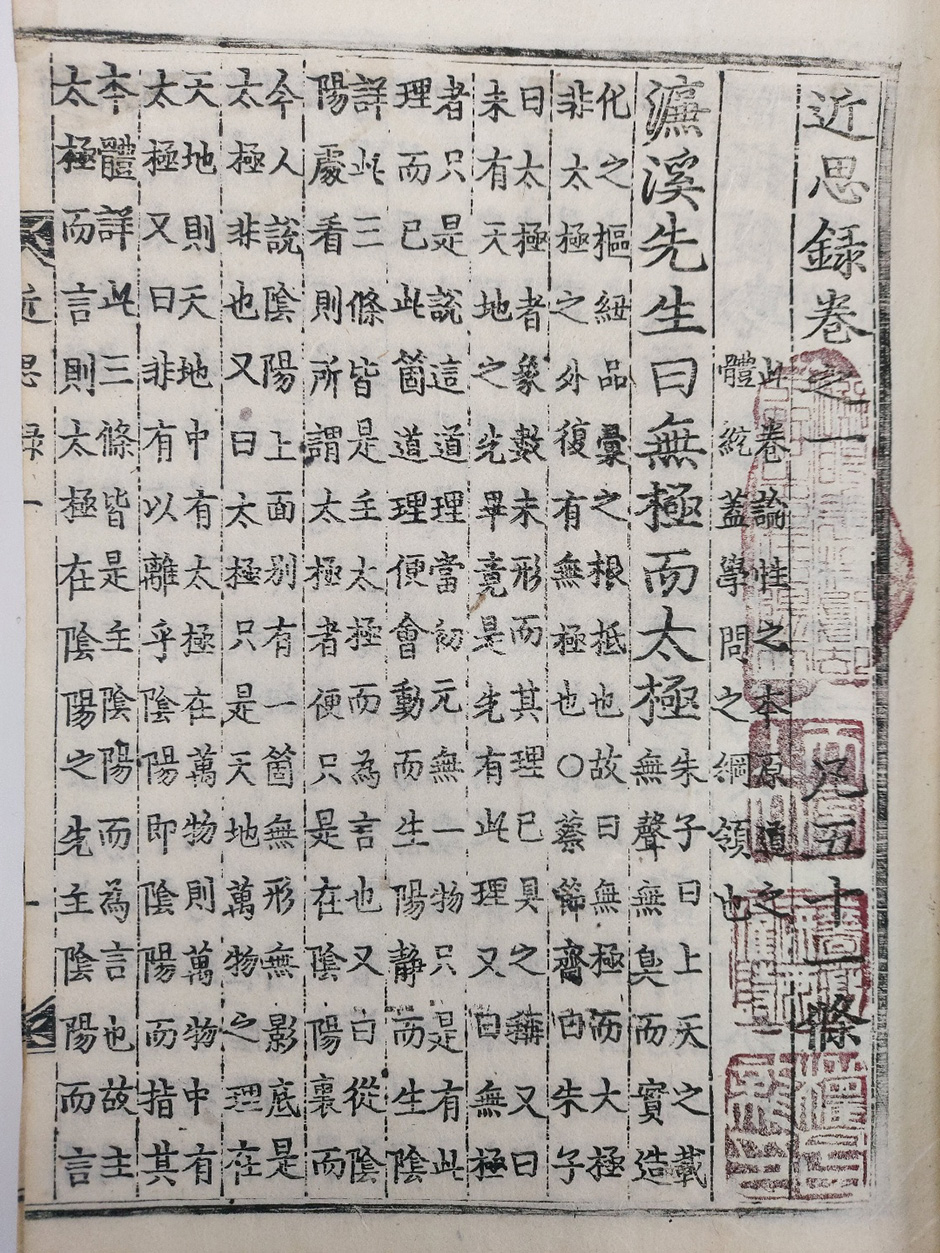 近思録卷之一 凡五十一條
此卷論性之本原道之
體統蓋學問之綱領也
濂溪先生曰無極而太極
朱子曰上天之載
無聲無臭而實造
化之樞紐品彙之根柢也故曰無極而大極
非太極之外復有無極也○蔡節齋曰朱子
曰太極者象數未形而其理已具之稱又曰
未有天地之先畢竟是先有此理又曰無極
者只是說這道理當初元無一物只是有此
理而已此箇道理便會動而生陽靜而生陰
詳此三條皆是主太極而為言也又曰從陰
陽處看則所謂太極者便只是在陰陽裏而
今人說陰陽上面別有一箇無形無影底是
太極非也又曰太極只是天地萬物之理在
天地則天地中有太極在萬物則萬物中有
太極又曰非有以離乎陰陽即陰陽而指其
本體詳此三條皆是主陰陽而為言也故主
太極而言則太極在陰陽之先主陰陽而言
近思録一
一